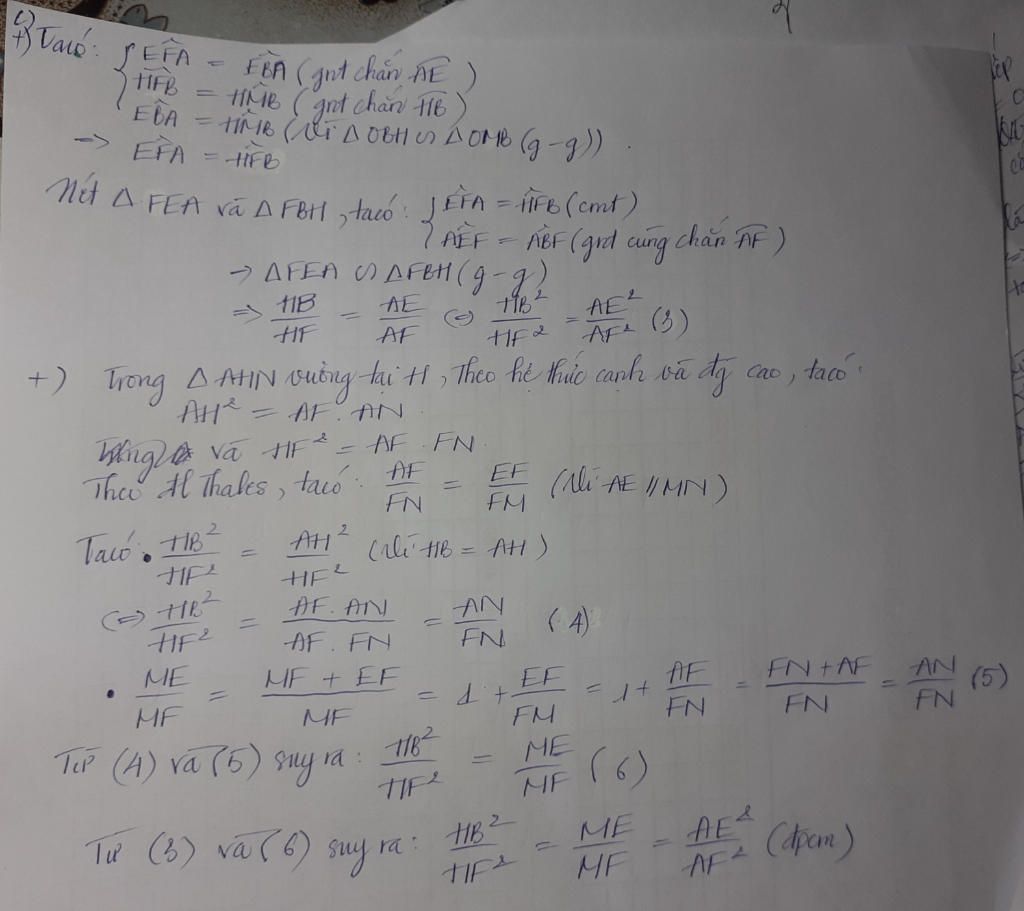 c)
+) Ta có: { EFA = EBA (gnt chắn AE)
HFB = HMB (gnt chắn HB)
EBA = HMB (Vì △OBH ∽ △OMB (g-g)).
=> EFA = HFB
Xét △FEA và △FBH, ta có: { EFA = HFB (cmt)
AEF = ABF (gnt cùng chắn AF)
→ △FEA ∽ △FBH (g-g)
=> HB/HF = AE/AF <=> HB²/HF² = AE²/AF² (3)
+) Trong △AHN vuông tại H, Theo hệ thức cạnh và đg cao, ta có:
AH² = AF . AN
và HF² = AF . FN.
Theo đl Thales, ta có: AF/FN = EF/FM (Vì AE // MN)
Ta có: • HB²/HF² = AH²/HF² (Vì HB = AH)
<=> HB²/HF² = AF . AN/AF . FN = AN/FN (4)
• ME/MF = MF + EF/MF = 1 + EF/FM = 1 + AF/FN = FN + AF/FN = AN/FN (5)
Từ (4) và (5) suy ra: HB²/HF² = ME/MF (6)
Từ (3) và (6) suy ra: HB²/HF² = ME/MF = AE²/AF² (đpcm)